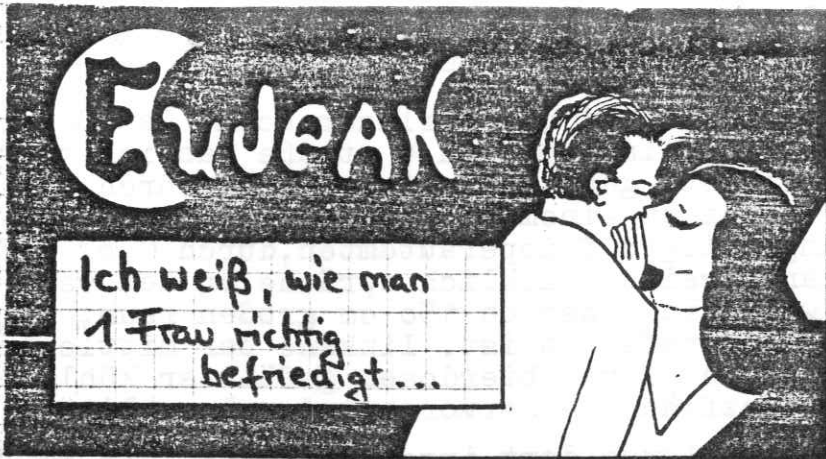 EUJEAN
Ich weiß, wie man
1 Frau richtig
befriedigt...